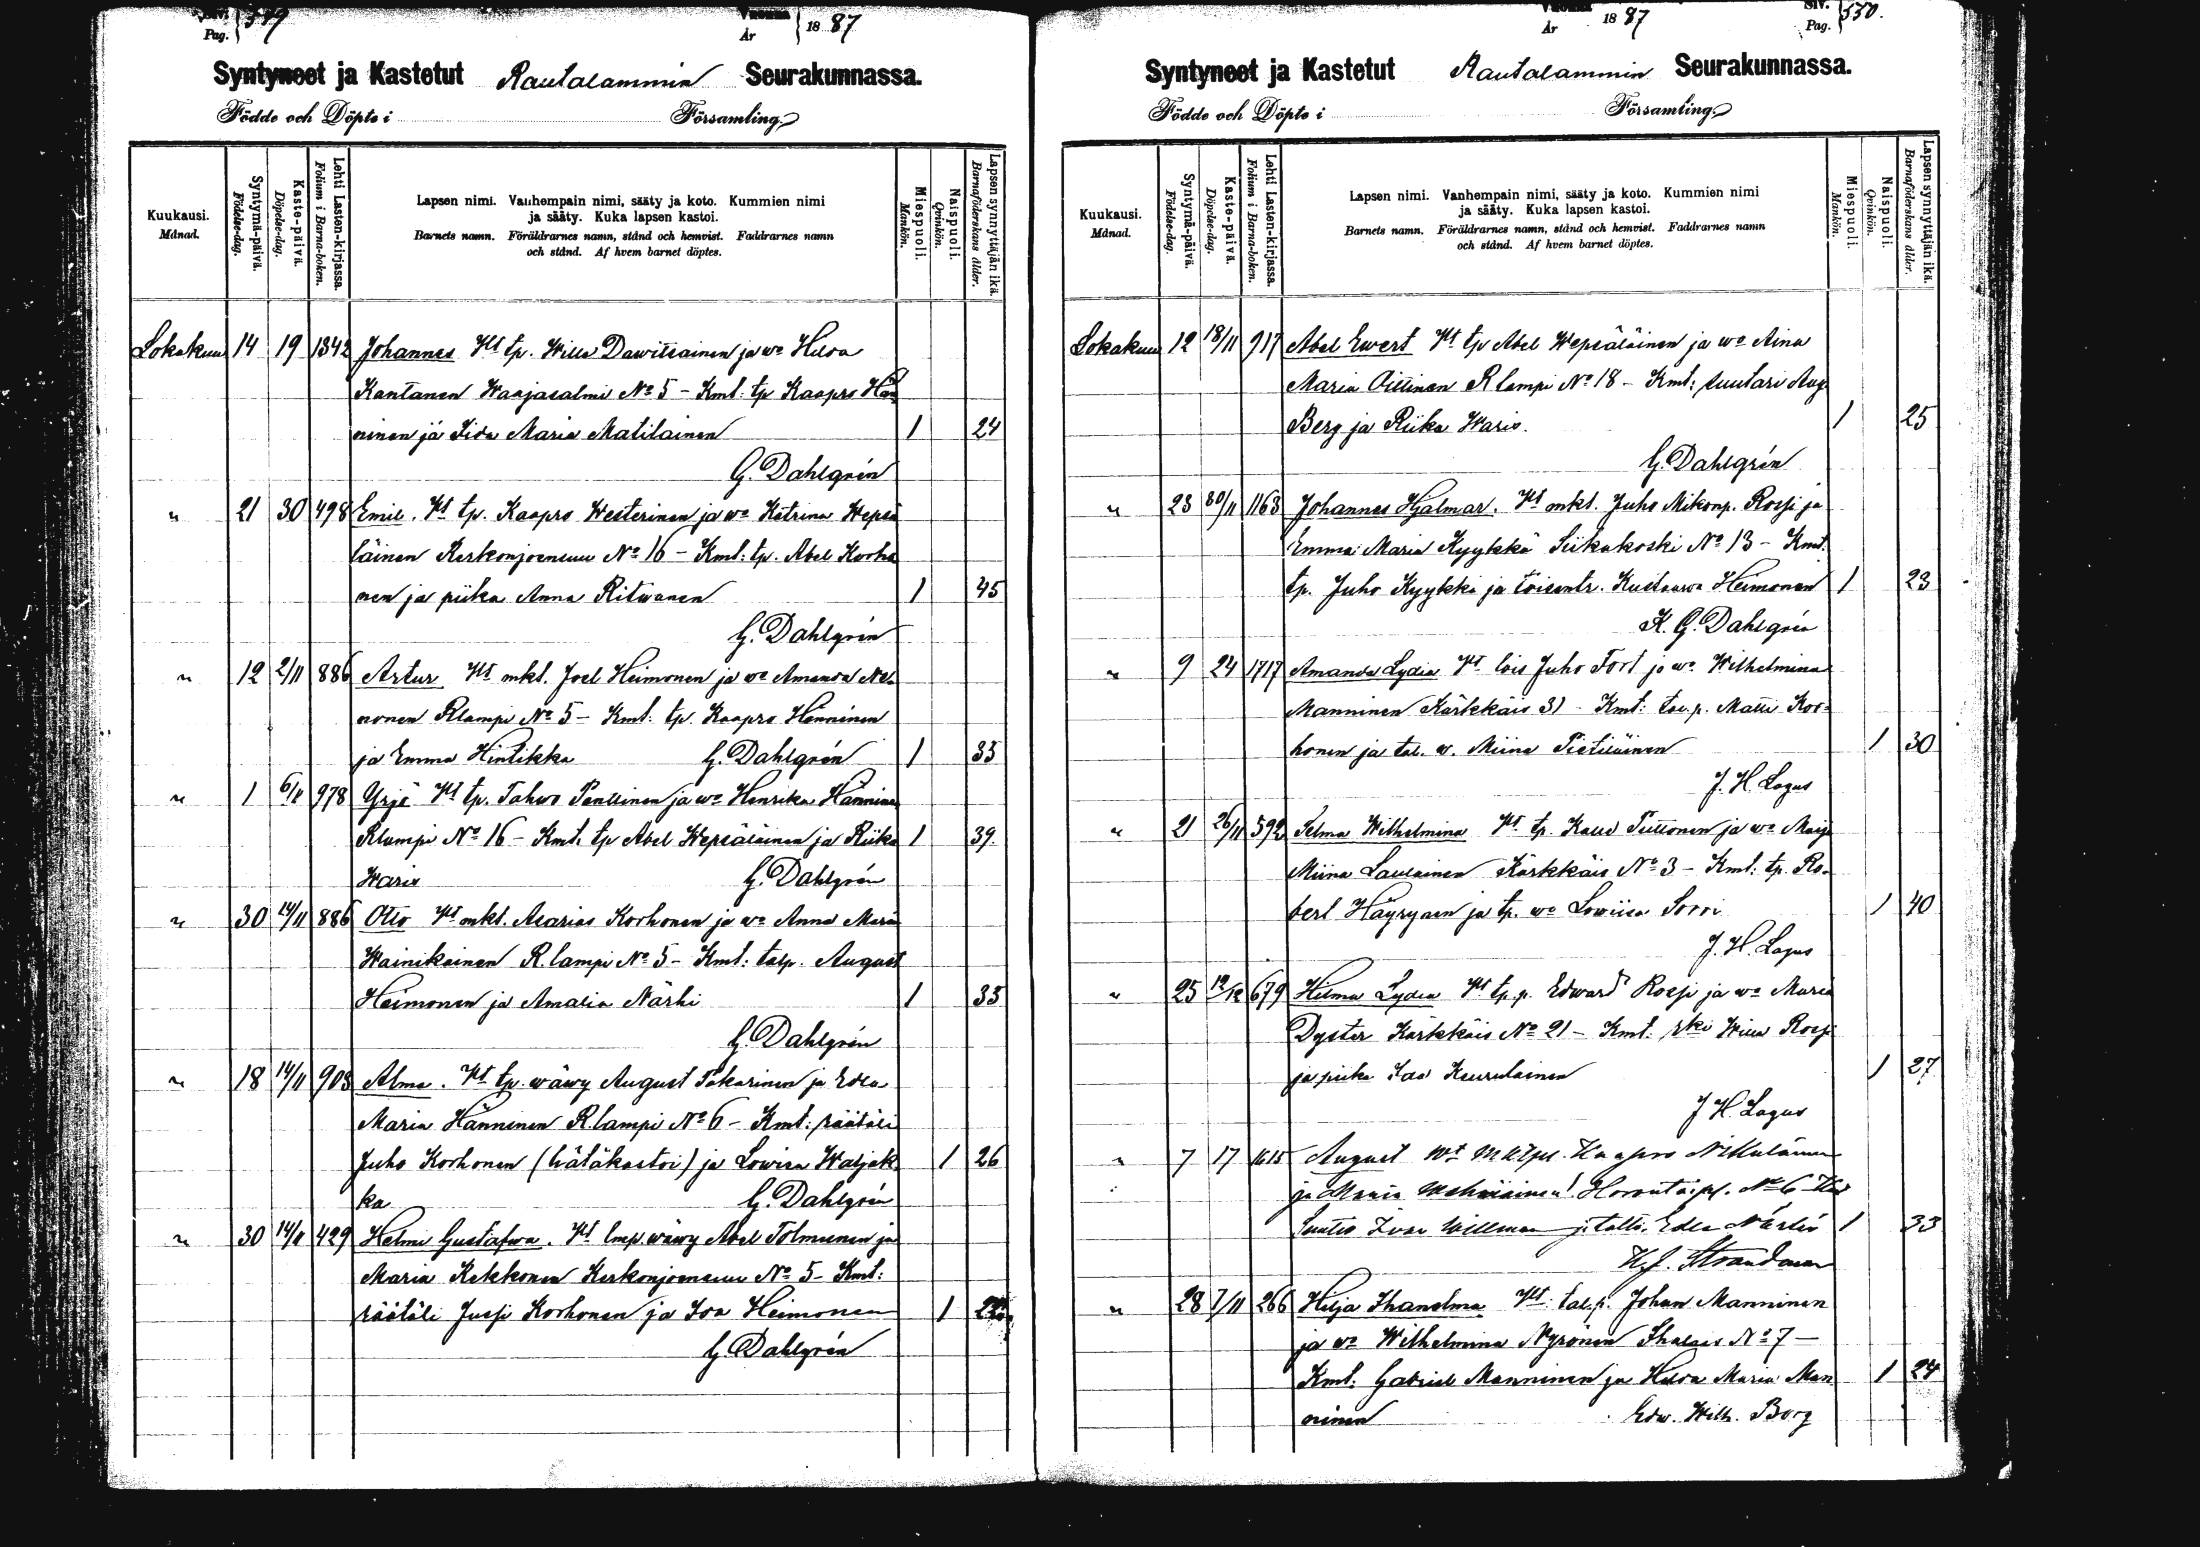 Pag. 549
År 1887
Syntyneet ja Kastetut Rautalammin Seurakunnassa.
Födde och Döpte i Församling
Kuukausi.
Månad.
Syntymä-päivä.
Födelse-dag.
Kaste-päivä.
Döpelse-dag.
Lehti Lasten-kirjassa.
Folium i Barna-boken.
Lapsen nimi. Vanhempain nimi, sääty ja koto. Kummien nimi
ja sääty. Kuka lapsen kastoi.
Barnets namn. Föräldrarnes namn, stånd och hemvist. Faddrarnes namn
och stånd. Af hvem barnet döptes.
Miespuoli.
Mankön.
Naispuoli.
Qvinkön.
Lapsen synnyttäjän ikä.
Barnaföderskans ålder.
Lokakuu 14 19 1342 Johannes Vt tp. Wille Dawitsainen ja wo Hilda
Kantanen Waajasalmi No 5 - Kmt: tp Kaapro Hän
ninen ja Iida Maria Matilainen 1 24
G. Dahlgrén
" 21 30 498 Emil. Vt tp. Kaapro Westerinen ja wo Katrina Wepsä
läinen Kerkonjoensuu No 16 - Kmt: tp. Abel Korho
nen ja piika Anna Ritwanen 1 45
G. Dahlgrén
" 12 2/11 886 Artur Vt mkt. Joel Heimonen ja wo Amanda
nonen Rlampi No 5 - Kmt: tp. Kaapro Hänninen
ja Emma Hintikka G. Dahlgrén 1 33
" 1 6/11 978 Yrjö Vt tp. Tahwo Penttinen ja wo Henrika Hänninen
Rlampi No 16 - Kmt. tp Abel Wepsäläinen ja Riika 1 39
Waris G. Dahlgrén
" 30 14/11 886 Otto Vt mkt. Asarias Korhonen ja wo Anna Maria
Wainikainen R.lampi No 5 - Kmt: talp. August
Heimonen ja Amalia Närhi 1 33
G. Dahlgrén
" 18 14/11 908 Alma. Vt tp. wäwy August Takarinen ja Edla
Maria Hänninen R.lampi No 6 - Kmt: räätäli
Juho Korhonen (hätäkastoi) ja Lowisa Waljak 1 26
ka G. Dahlgrén
" 30 14/11 429 Helmi Gustafwa. Vt lmp. wäwy Abel Tolmunen ja
Maria Kekkonen Kerkonjoensuu No 5 - Kmt:
räätäli Jussi Korhonen ja Ida Heimonen 1
G. Dahlgrén
År 1887
Siv.
Pag. 550.
Syntyneet ja Kastetut Rautalammin Seurakunnassa.
Födde och Döpte i Församling
Kuukausi.
Månad.
Syntymä-päivä.
Födelse-dag.
Kaste-päivä.
Döpelse-dag.
Lehti Lasten-kirjassa.
Folium i Barna-boken.
Lapsen nimi. Vanhempain nimi, sääty ja koto. Kummien nimi
ja sääty. Kuka lapsen kastoi.
Barnets namn. Föräldrarnes namn, stånd och hemvist. Faddrarnes namn
och stånd. Af hvem barnet döptes.
Miespuoli.
Mankön.
Naispuoli.
Qvinkön.
Lapsen synnyttäjän ikä.
Barnaföderskans ålder.
Lokakuu 12 18/11 917 Abel Ewert Vt tp Abel Wepsäläinen ja wo Aina
Maria Oittinen R lampi No 18 - Kmt: suutari Aug.
Berg ja Riika Waris. 1 25
G. Dahlgrén
" 23 30/11 1163 Johannes Hjalmar. Vt mkt. Juho Mikonp. Rossi ja
Emma Maria Kyykkä Siikakoski No 13 - Kmt.
tp. Juho Kyykkä ja Kustaawa Heimonen 1 23
K. G. Dahlgrén
" 9 24 1717 Amanda Lydia Vt lois Juho Fort ja wo Wilhelmina
Manninen Kärkkäis 31 - Kmt: tal.p. Matti Kor-
honen ja tal. w. Miina Pietiläinen 1 30
J. H. Lagus
" 21 26/11 592 Selma Wilhelmina Vt tp. Kalle Tuttonen ja wo Maija
Miina Laulainen Kärkkäis No 3 - Kmt: tp. Ro-
bert Häyrynen ja tp. wo Lowiisa Sorri 1 40
J. H. Lagus
" 25 12/12 679 Hilma Lydia Vt tp.p. Edward Rossi ja wo Maria
Dyster Kärkkäis No 21 - Kmt: Wille Rossi
ja piika Ida Kaurulainen 1 27
J H. Lagus
" 7 17 1615 August Kaapro
ja Maria No 6
Iwar Willman ja Edla 1 33
H. J. Strandman
" 28 7/11 266 Hilja Vt: tal.p. Johan Manninen
ja wo Wilhelmina Nyrönen No 7 -
Kmt: Gabriel Manninen ja Hilda Maria Man 1 24
ninen Edw. Wilh. Borg